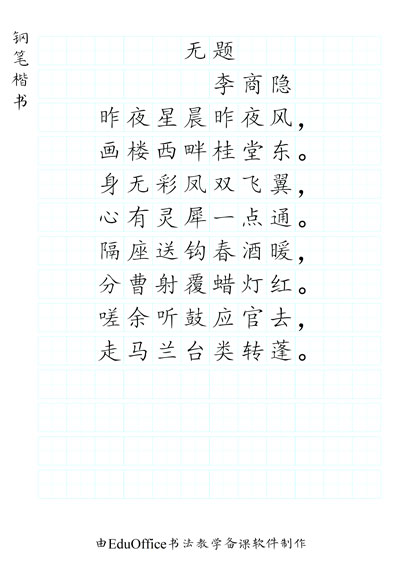 钢笔楷书
无题
李商隐
昨夜星晨昨夜风，
画楼西畔桂堂东。
身无彩凤双飞翼，
心有灵犀一点通。
隔座送钩春酒暖，
分曹射覆蜡灯红。
嗟余听鼓应官去，
走马兰台类转蓬。
由EduOffice书法教学备课软件制作